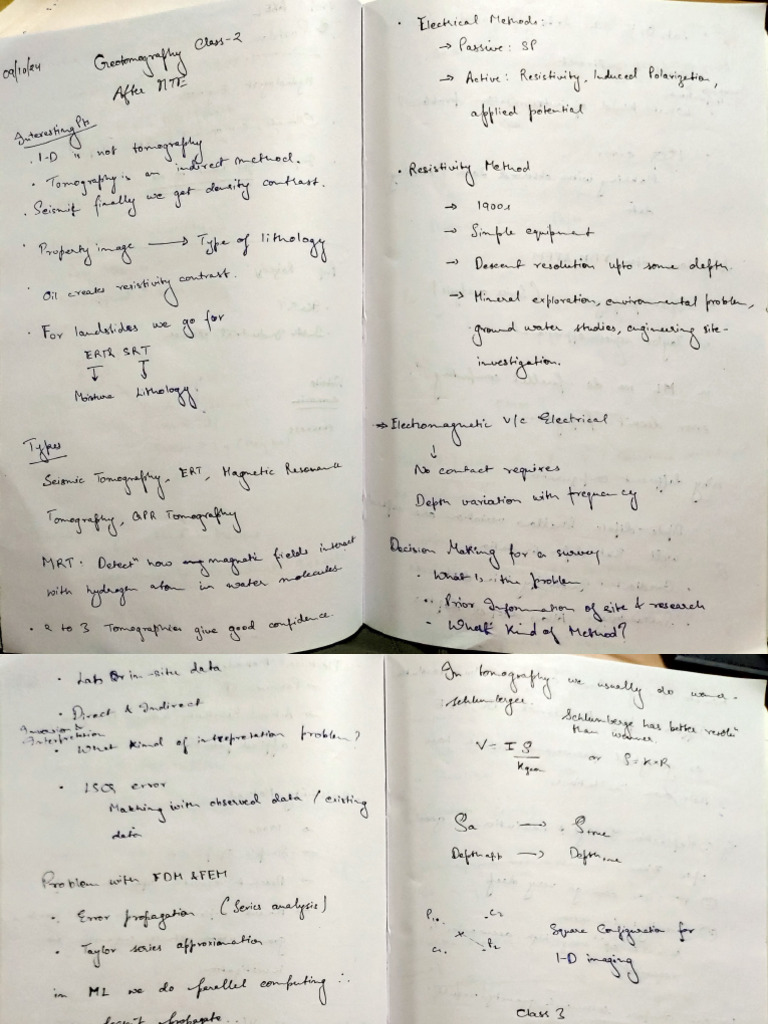 09/10/24
Geotomography Class-2
After MTE
Interesting Pts
. 1-D is not tomography
. Tomography is an indirect method.
. Seismic finally we get density contrast.
. Property image → Type of lithology
. Oil creates resistivity contrast.
. For landslides we go for
ERT & SRT
↓ ↓
Moisture Lithology.
Types
Seismic Tomography, ERT, Magnetic Resonance
Tomography, GPR Tomography
MRT. Detectn how magnetic fields interact
with hydrogen atom in water molecules
. 2 to 3 Tomographies give good confidence.
. Electrical Methods:
→ Passive: SP
→ Active: Resistivity, Induced Polarization,
applied potential
. Resistivity Method
→ 1900s
→ Simple equipment
→ Descent resolution upto some depth.
→ Mineral exploration, environmental problem,
ground water studies, engineering site-
investigation.
→ Electromagnetic v/c Electrical
↓
No contact requires
Depth variation with frequency
Decision Making for a survey
. What is the problem
. Prior Information of site & research
. What Kind of Method?
. Lab or in-situ data
. Direct & Indirect
Interpretation
. What kind of interpretation problem?
. LSQ error
Matching with observed data / existing
data
Problem with FDM & FEM
. Error propagation (Series analysis)
. Taylor series approximation
in ML we do parallel computing ∴
doesn't propagate.
In tomography we usually do
schlumberger.
Schlumberge has better resolun
than wenner.
V = Iρ/Kgeom or ρ = K×R
ρa → ρtrue
Depth app → Depth true
P1 C2
C1 P2
Square Configuration for
1-D imaging
Class 3